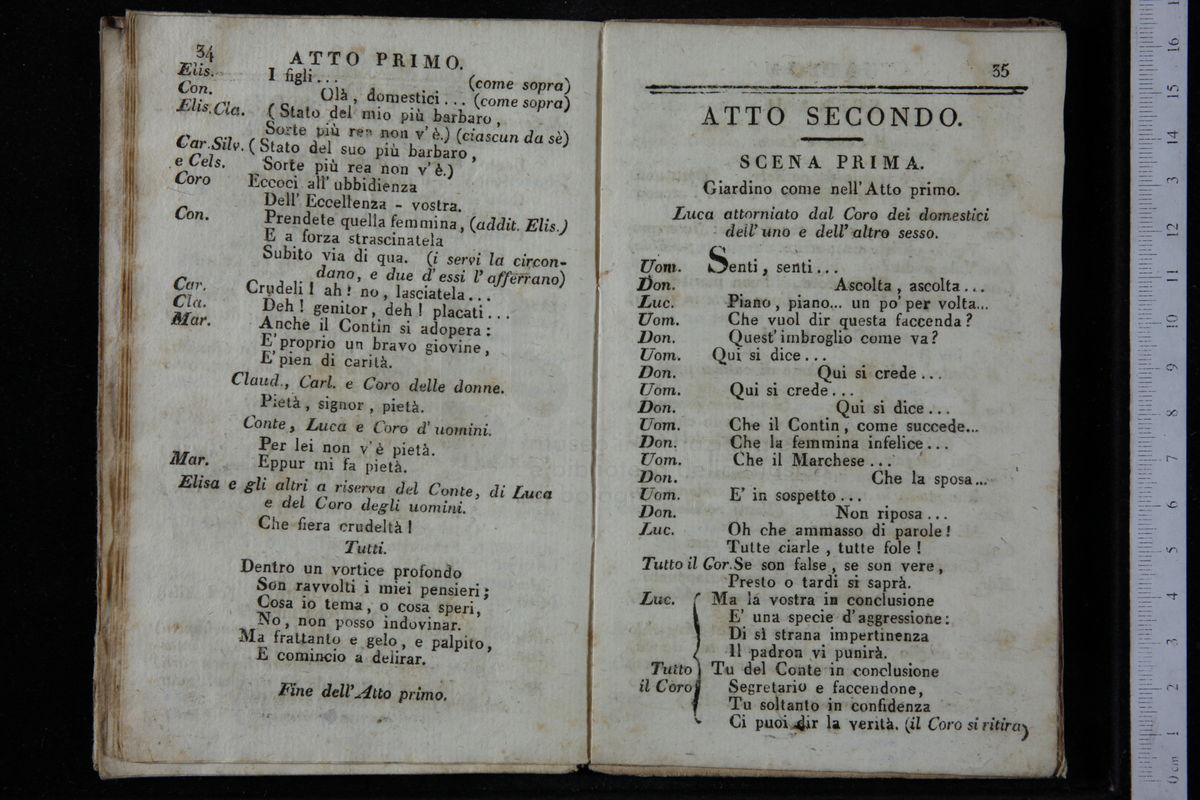 34 ATTO PRIMO.
Elis. I figli... (come sopra)
Con. Olà, domestici... (come sopra)
Elis. Cla. (Stato del mio più barbaro,
Sorte più rea non v'è.) (ciascun da sè)
Car. Silv. (Stato del suo più barbaro,
e Cels. Sorte più rea non v'è.)
Coro Eccoci all' ubbidienza
Dell' Eccellenza - vostra.
Con. Prendete quella femmina, (addit. Elis.)
E a forza strascinatela
Subito via di qua. (i servi la circon-
dano, e due d'essi l'afferrano)
Car. Crudeli! ah! no, lasciatela...
Cla. Deh! genitor, deh! placati...
Mar. Anche il Contin si adopera:
E' proprio un bravo giovine,
E' pien di carità.
Claud., Carl. e Coro delle donne.
Pietà, signor, pietà.
Conte, Luca e Coro d'uomini.
Per lei non v'è pietà.
Mar. Eppur mi fa pietà.
Elisa e gli altri a riserva del Conte, di Luca
e del Coro degli uomini.
Che fiera crudeltà!
Tutti.
Dentro un vortice profondo
Son ravvolti i miei pensieri;
Cosa io tema, o cosa speri,
No, non posso indovinar.
Ma frattanto e gelo, e palpito,
E comincio a delirar.
Fine dell'Atto primo.
35
ATTO SECONDO.
SCENA PRIMA.
Giardino come nell'Atto primo.
Luca attorniato dal Coro dei domestici
dell' uno e dell' altro sesso.
Uom. Senti, senti...
Don. Ascolta, ascolta...
Luc. Piano, piano... un po' per volta...
Uom. Che vuol dir questa faccenda?
Don. Quest' imbroglio come va?
Uom. Qui si dice...
Don. Qui si crede...
Uom. Qui si crede...
Don. Qui si dice...
Uom. Che il Contin, come succede...
Don. Che la femmina infelice...
Uom. Che il Marchese...
Don. Che la sposa...
Uom. E' in sospetto...
Don. Non riposa...
Luc. Oh che ammasso di parole!
Tutte ciarle, tutte fole!
Tutto il Cor. Se son false, se son vere,
Presto o tardi si saprà.
Luc. Ma la vostra in conclusione
E' una specie d'aggressione:
Di sì strana impertinenza
Il padron vi punirà.
Tutto Tu del Conte in conclusione
il Coro Segretario e faccendone,
Tu soltanto in confidenza
Ci puoi dir la verità. (il Coro si ritira)